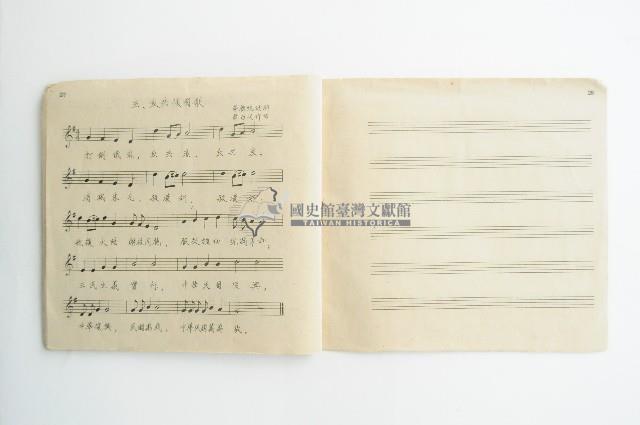 五、反共復國歌
打倒俄寇, 反共產, 反共產.
消滅朱毛, 殺漢奸, 殺漢
國史館臺灣文獻館
TAIWAN HISTORICA
收復大陸 解救同胞, 服從領袖 完成革命;
三民主義 實行, 中華民國 復興,
中華復興, 民國萬歲, 中華民國萬萬歲.